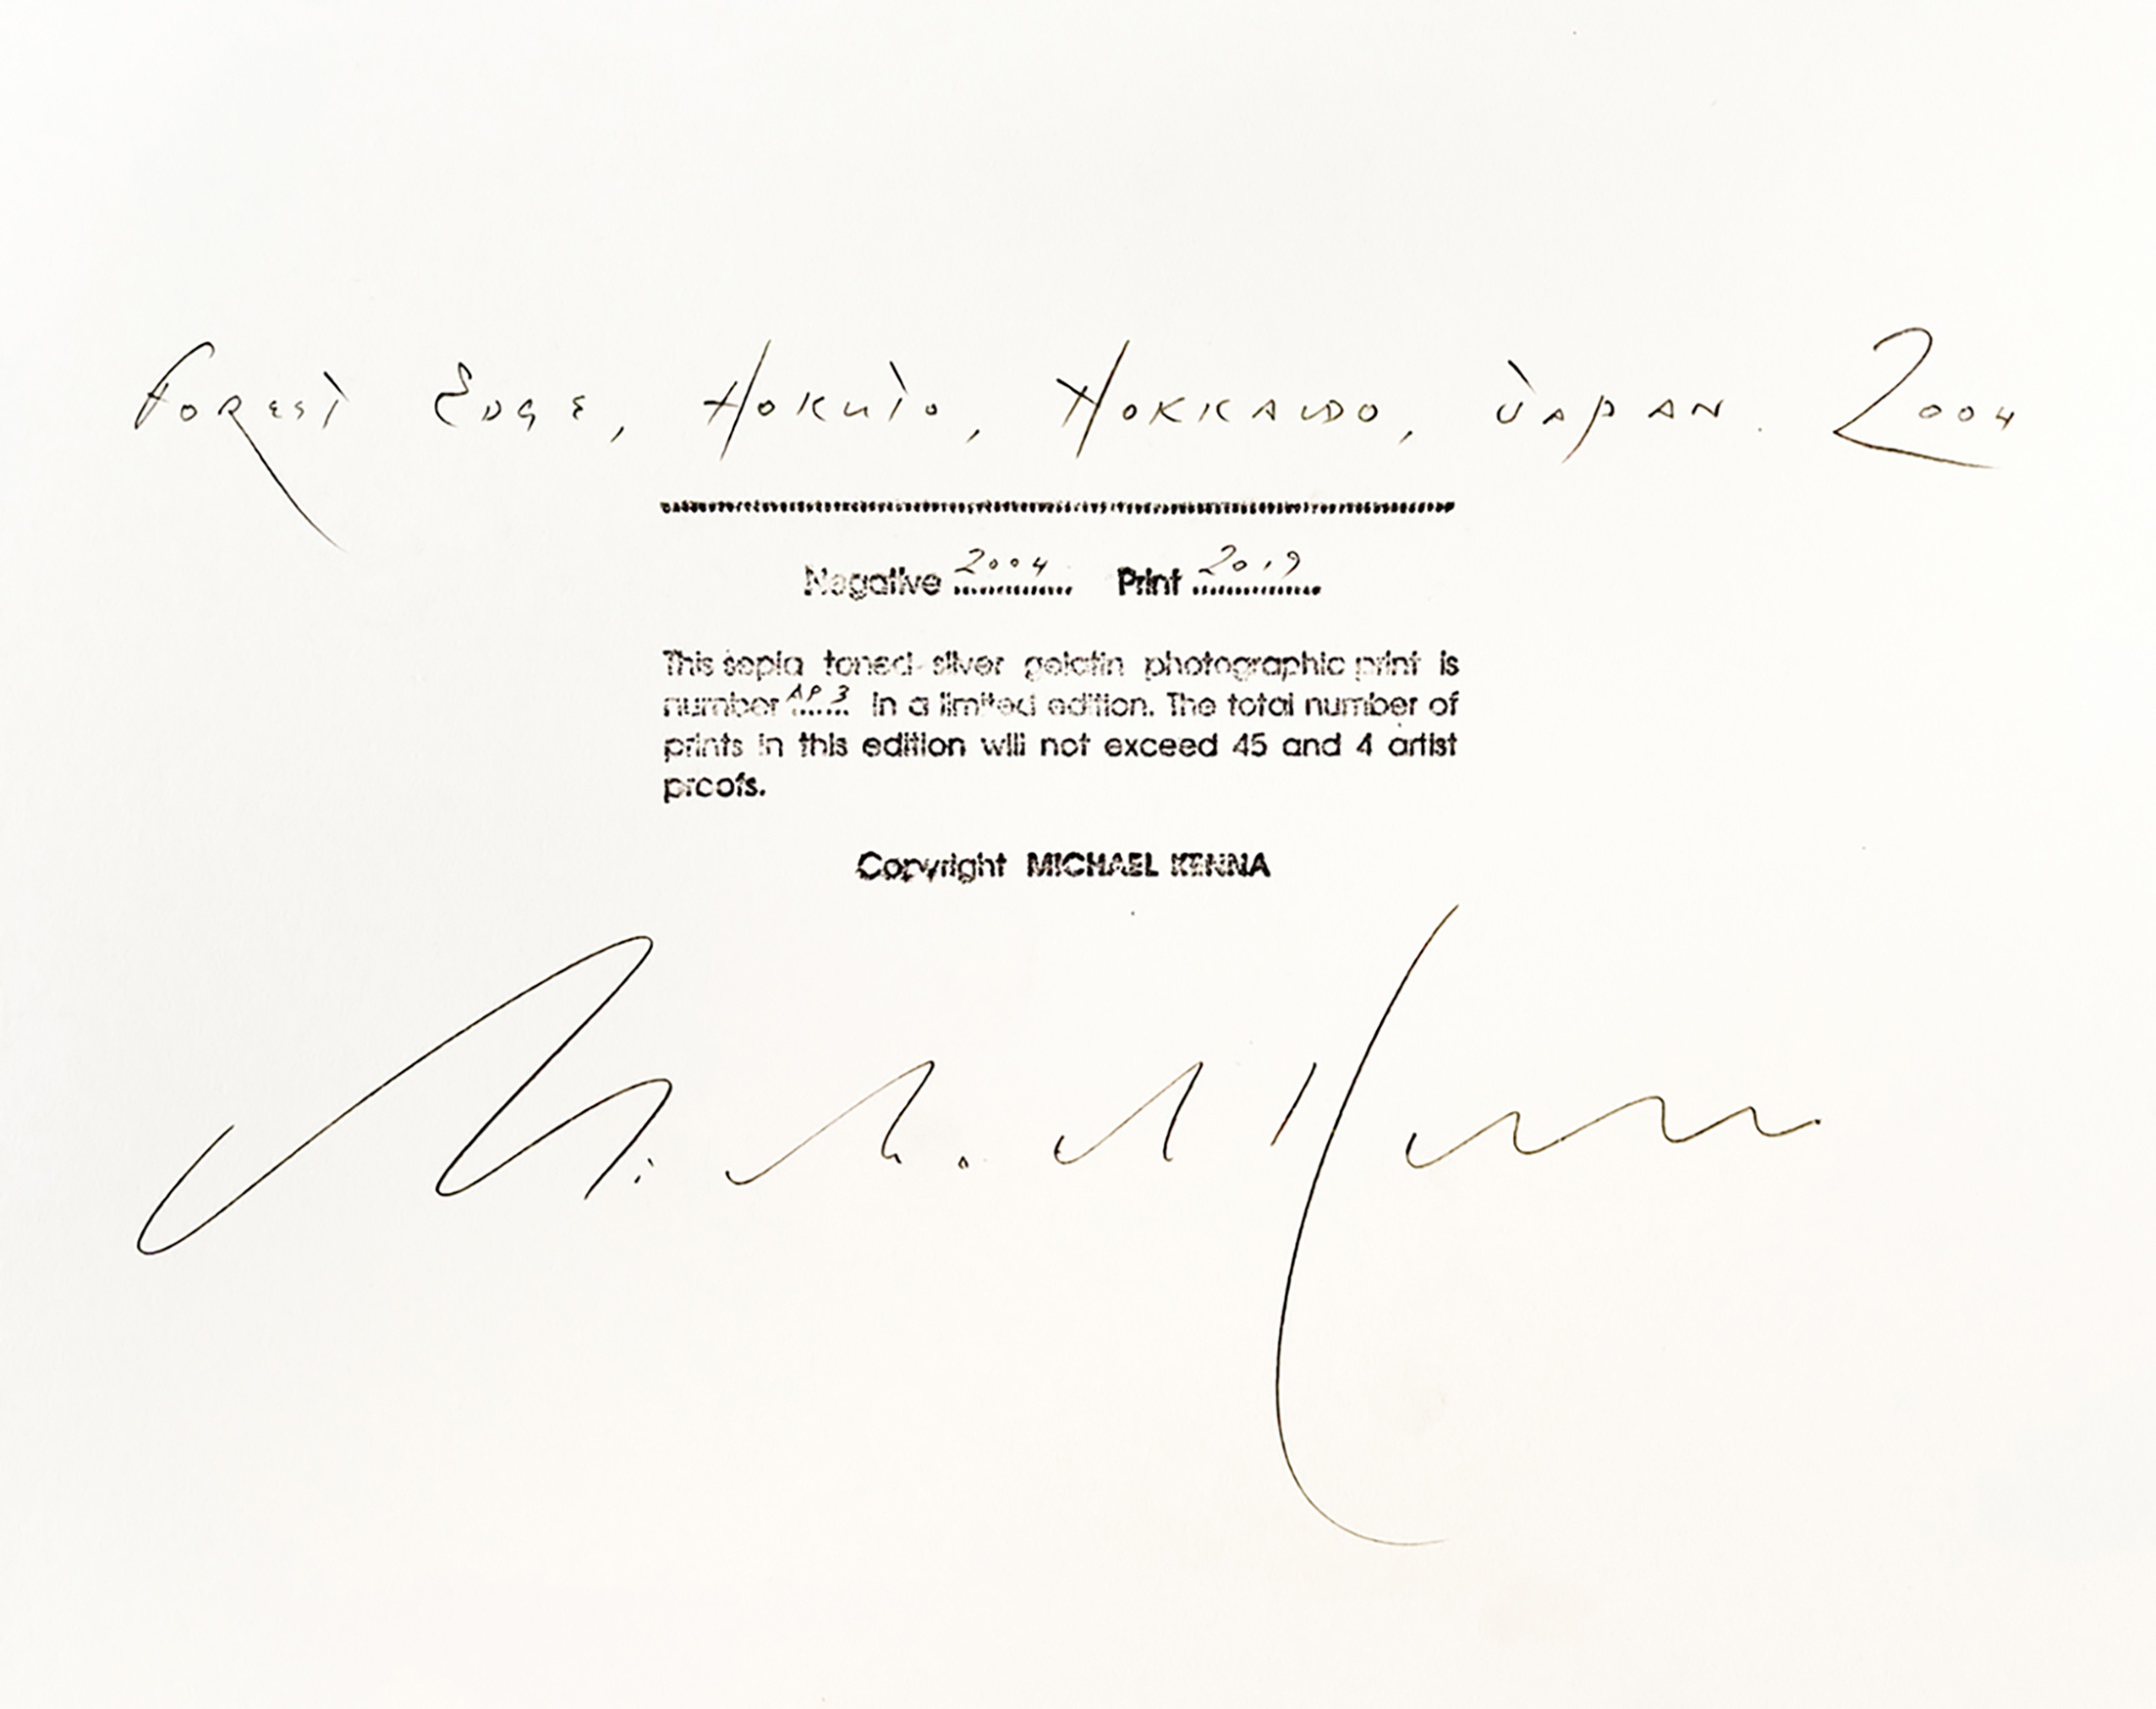 Forest Edge, Hokuto, Hokkaido, Japan. 2004
Negative 2004 Print 2019
This sepia toned silver gelatin photographic print is
number AP 3 in a limited edition. The total number of
prints in this edition will not exceed 45 and 4 artist
proofs.
Copyright MICHAEL KENNA
Michael Kenna